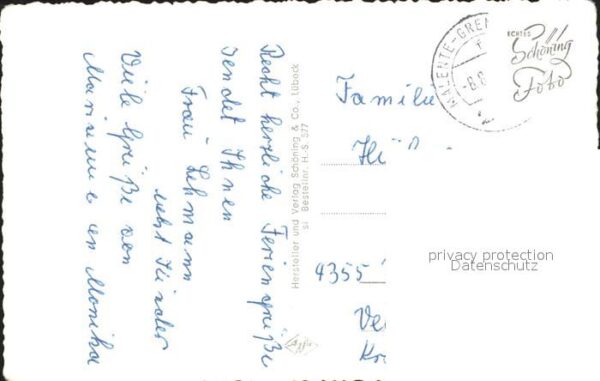 Recht herzliche Feriengrüße
sendet Ihnen
Frau Lehmann
nebst Kinder
Viele Grüße von
Marianne an Monika
Hersteller und Verlag Schöning & Co., Lübeck
si Bestellnr. H.-S. 577
MALENTE-GREM
ECHTES
Schöning
Foto
Familie
4355
privacy protection
Datenschutz